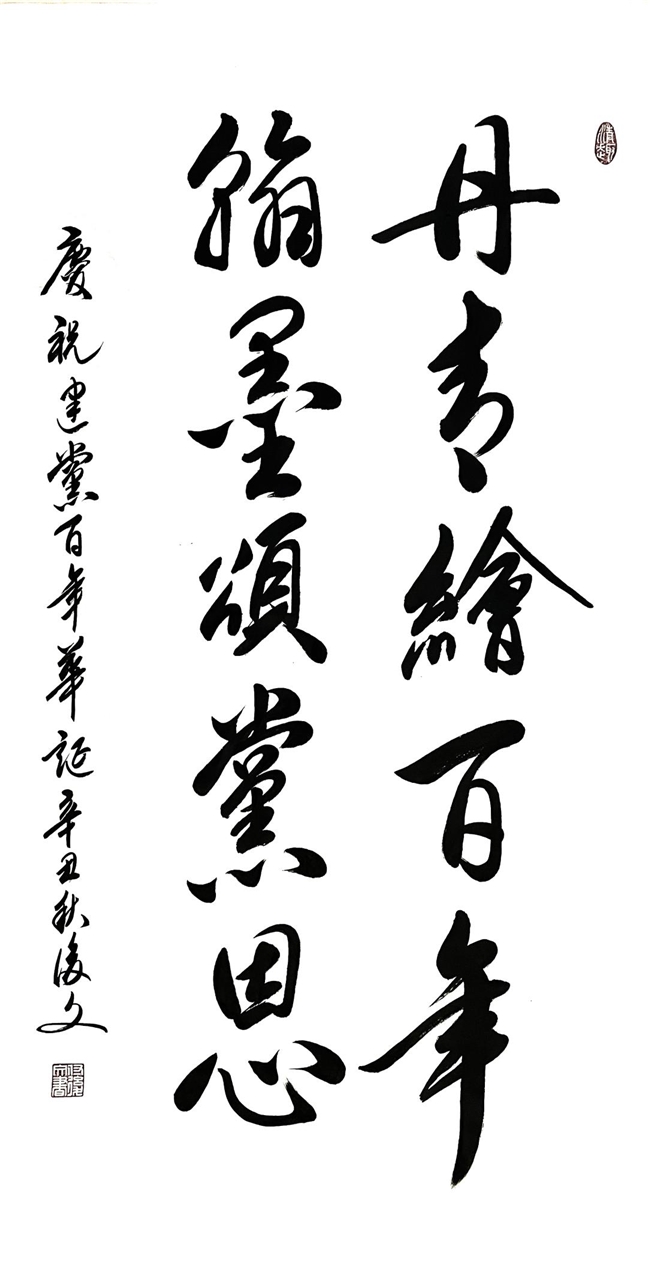 清趣
丹青繪百年
翰墨頌黨恩
慶祝建黨百年華誕辛丑秋文